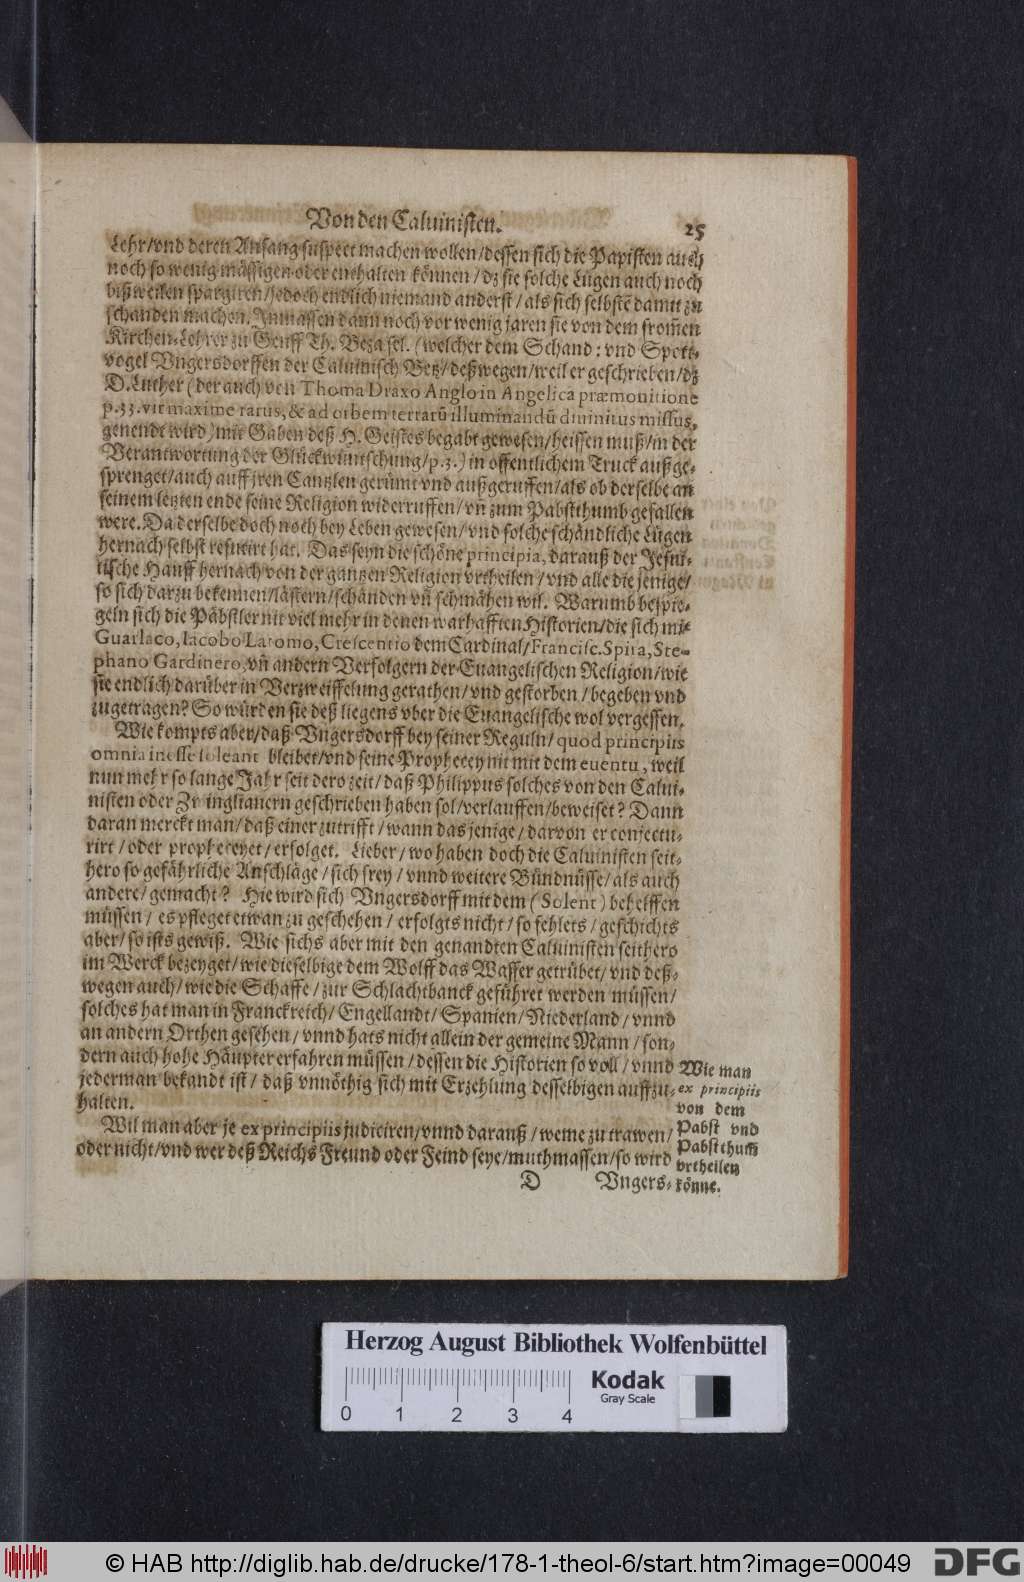 Von den Caluinisten.
25
Lehr/vnd deren Anfang suspect machen wollen/dessen sich die Papisten auch
noch so wenig mässigen oder enthalten können/dz sie solche Lügen auch noch
bißweilen spargiren/jedoch endlich niemand anderst/als sich selbstē damit zu
schanden machen. Inmassen dann noch vor wenig jaren sie von dem from̄en
Kirchen-Lehrer zu Genff Th. Beza sel. (welcher dem Schand: vnd Spott-
vogel Vngersdorffen der Caluinisch Betz/deßwegen/weil er geschrieben/dz
D. Luther (der auch von Thoma Draxo Anglo in Angelica præmonitione
p.33. vir maxime rarus, & ad orbem terrarū illuminandū diuinitus missus,
genendt wird) mit Gaben deß H. Geistes begabt gewesen/heissen muß/in der
Verantwortung der Glückwüntschung/p.3.) in offentlichem Truck außge-
sprenget/auch auff jren Cantzlen gerümt vnd außgeruffen/als ob derselbe an
seinem letzten ende seine Religion widerruffen/vn̄ zum Pabstthumb gefallen
were. Da derselbe doch noch bey Leben gewesen/vnd solche schändliche Lügen
hernach selbst refutirt hat. Das seyn die schöne principia, darauß der Jesui-
tische Hauff hernach von der gantzen Religion vrtheilen/vnd alle die jenige/
so sich darzu bekennen/lästern/schänden vn̄ schmähen wil. Warumb bespie-
geln sich die Päbstler nit viel mehr in denen warhafften Historien/die sich mit
Guarlaco, Iacobo Latomo, Crescentio dem Cardinal/Francisc. Spira, Ste-
phano Gardinero, vn̄ andern Verfolgern der Euangelischen Religion/wie
sie endlich darüber in Verzweiffelung gerathen/vnd gestorben/begeben vnd
zugetragen? So würden sie deß liegens vber die Euangelische wol vergessen.
Wie kompts aber/daß Vngersdorff bey seiner Reguln/quod principiis
omnia inesse soleant bleibet/vnd seine Prophecey nit mit dem euentu, weil
nun mehr so lange Jahr seit dero zeit/daß Philippus solches von den Calui-
nisten oder Zwinglianern geschrieben haben sol/verlauffen/beweiset? Dann
daran merckt man/daß einer zutrifft/wann das jenige/darvon er conjectu-
rirt/oder propheceyet/erfolget. Lieber/wo haben doch die Caluinisten seit-
hero so gefährliche Anschläge/sich frey/vnnd weitere Bündnüsse/als auch
andere/gemacht? Hie wird sich Vngersdorff mit dem (Solent) behelffen
müssen/es pfleget etwan zu geschehen/erfolgts nicht/so fehlets/geschichts
aber/so ists gewiß. Wie sichs aber mit den genandten Caluinisten seithero
im Werck bezeyget/wie dieselbige dem Wolff das Wasser getrübet/vnd deß-
wegen auch/wie die Schaffe/zur Schlachtbanck geführet werden müssen/
solches hat man in Franckreich/Engellandt/Spanien/Niederland/vnnd
an andern Orthen gesehen/vnnd hats nicht allein der gemeine Mann/son-
dern auch hohe Häupter erfahren müssen/dessen die Historien so voll/vnnd
jederman bekandt ist/daß vnnöthig sich mit Erzehlung desselbigen auffzu-
halten.
Wil man aber je ex principiis judiciren/vnnd darauß/weme zu trawen/
oder nicht/vnd wer deß Reichs Freund oder Feind seye/muthmassen/so wird
D Vngers-
Wie man
ex principiis
von dem
Pabst vnd
Pabstthum̄
vrtheilen
könne.
Herzog August Bibliothek Wolfenbüttel
Kodak
Gray Scale
0 1 2 3 4
© HAB http://diglib.hab.de/drucke/178-1-theol-6/start.htm?image=00049
DFG